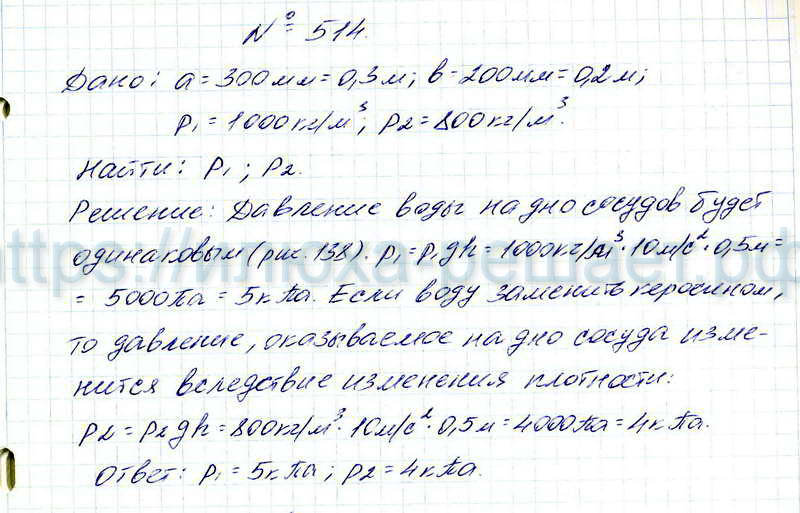 № 514.
Дано: a = 300 мм = 0,3 м; в = 200 мм = 0,2 м;
ρ₁ = 1000 кг/м³; ρ₂ = 800 кг/м³.
Найти: p₁; p₂.
Решение: Давление воды на дно сосудов будет
одинаковым (рис. 138). p₁ = ρ₁gh = 1000 кг/м³ · 10 м/с² · 0,5 м =
= 5000 Па = 5 кПа. Если воду заменить керосином,
то давление, оказываемое на дно сосуда изме-
нится вследствие изменения плотности:
p₂ = ρ₂gh = 800 кг/м³ · 10 м/с² · 0,5 м = 4000 Па = 4 кПа.
Ответ: p₁ = 5 кПа; p₂ = 4 кПа.